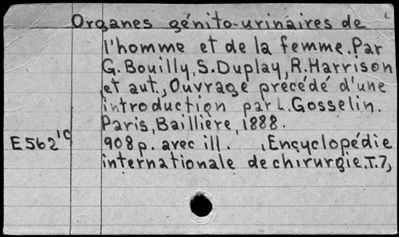 Organes génito-urinaires de
l'homme et de la femme. Par
G. Bouilly, S. Duplay, R. Harrison
et aut., Ouvrage precédé d'une
introduction par L. Gosselin.
Paris, Baillière, 1888.
E562¹ᶜ 908 p. avec ill. , Encyclopédie
internationale de chirurgie, T. 7,